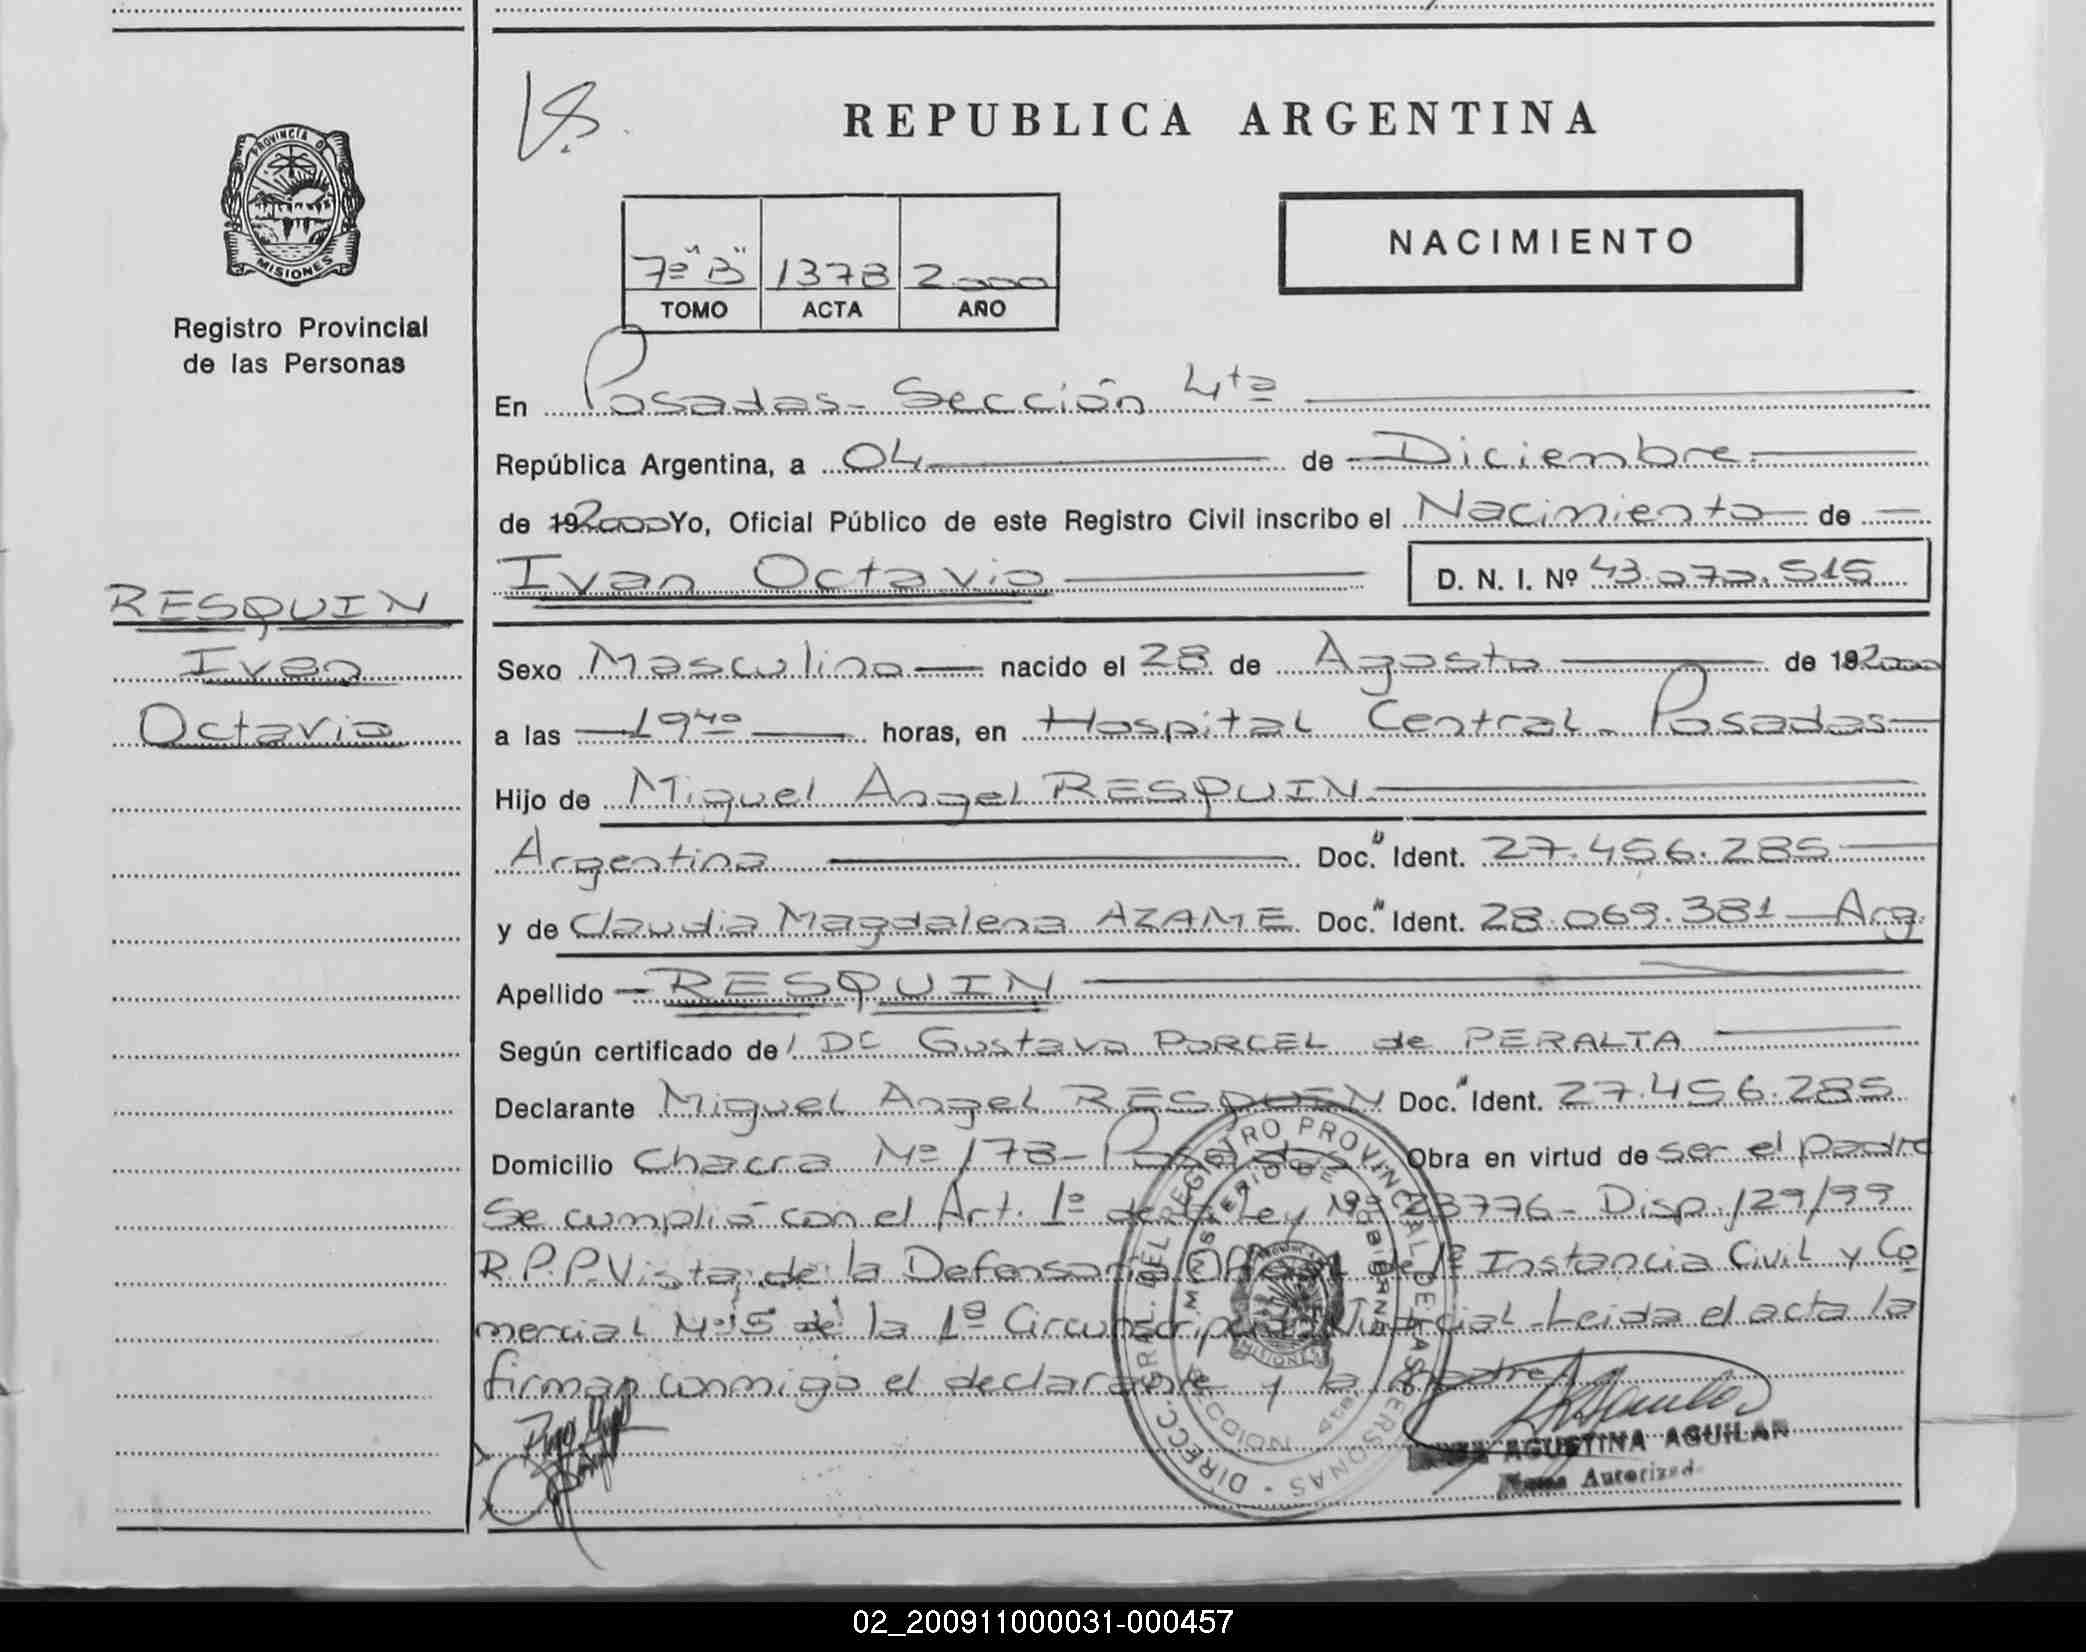 REPUBLICA ARGENTINA
PROVINCIA D
MISIONES
Registro Provincial
de las Personas
7º "B" 1378 2.000
TOMO ACTA AÑO
NACIMIENTO
En Posadas - Sección 4ta
República Argentina, a 04 de Diciembre
de 192000 Yo, Oficial Público de este Registro Civil inscribo el Nacimiento de
Ivan Octavio D. N. I. Nº 43.070.515
RESQUIN
Ivan
Octavio
Sexo Masculino nacido el 28 de Agosto de 192000
a las 19 40 horas, en Hospital Central - Posadas
Hijo de Miguel Angel RESQUIN
Argentina Doc. Ident. 27.456.285
y de Claudia Magdalena AZAME Doc. Ident. 28.069.381 Arg.
Apellido RESQUIN
Según certificado de Gustavo PORCEL de PERALTA
Declarante Miguel Angel RESQUIN Doc. Ident. 27.456.285
Domicilio Chacra Nº 178 - Posadas Obra en virtud de ser el padre
Se cumplió con el Art. 1º de la Ley Nº 23776 - Disp. 129/99
R.P.P. Vista de la Defensoria Oficial de 1º Instancia Civil y Co
mercial Nº 5 de la 1ª Circunscripción Judicial - Leida el acta la
firman conmigo el declarante y la madre
DIRECC. GRAL. DEL REGISTRO PROVINCIAL DE LAS PERSONAS
MINISTERIO DE GOBIERNO
MISIONES
AGUSTINA AGUILAR
Autorizad
02_200911000031-000457